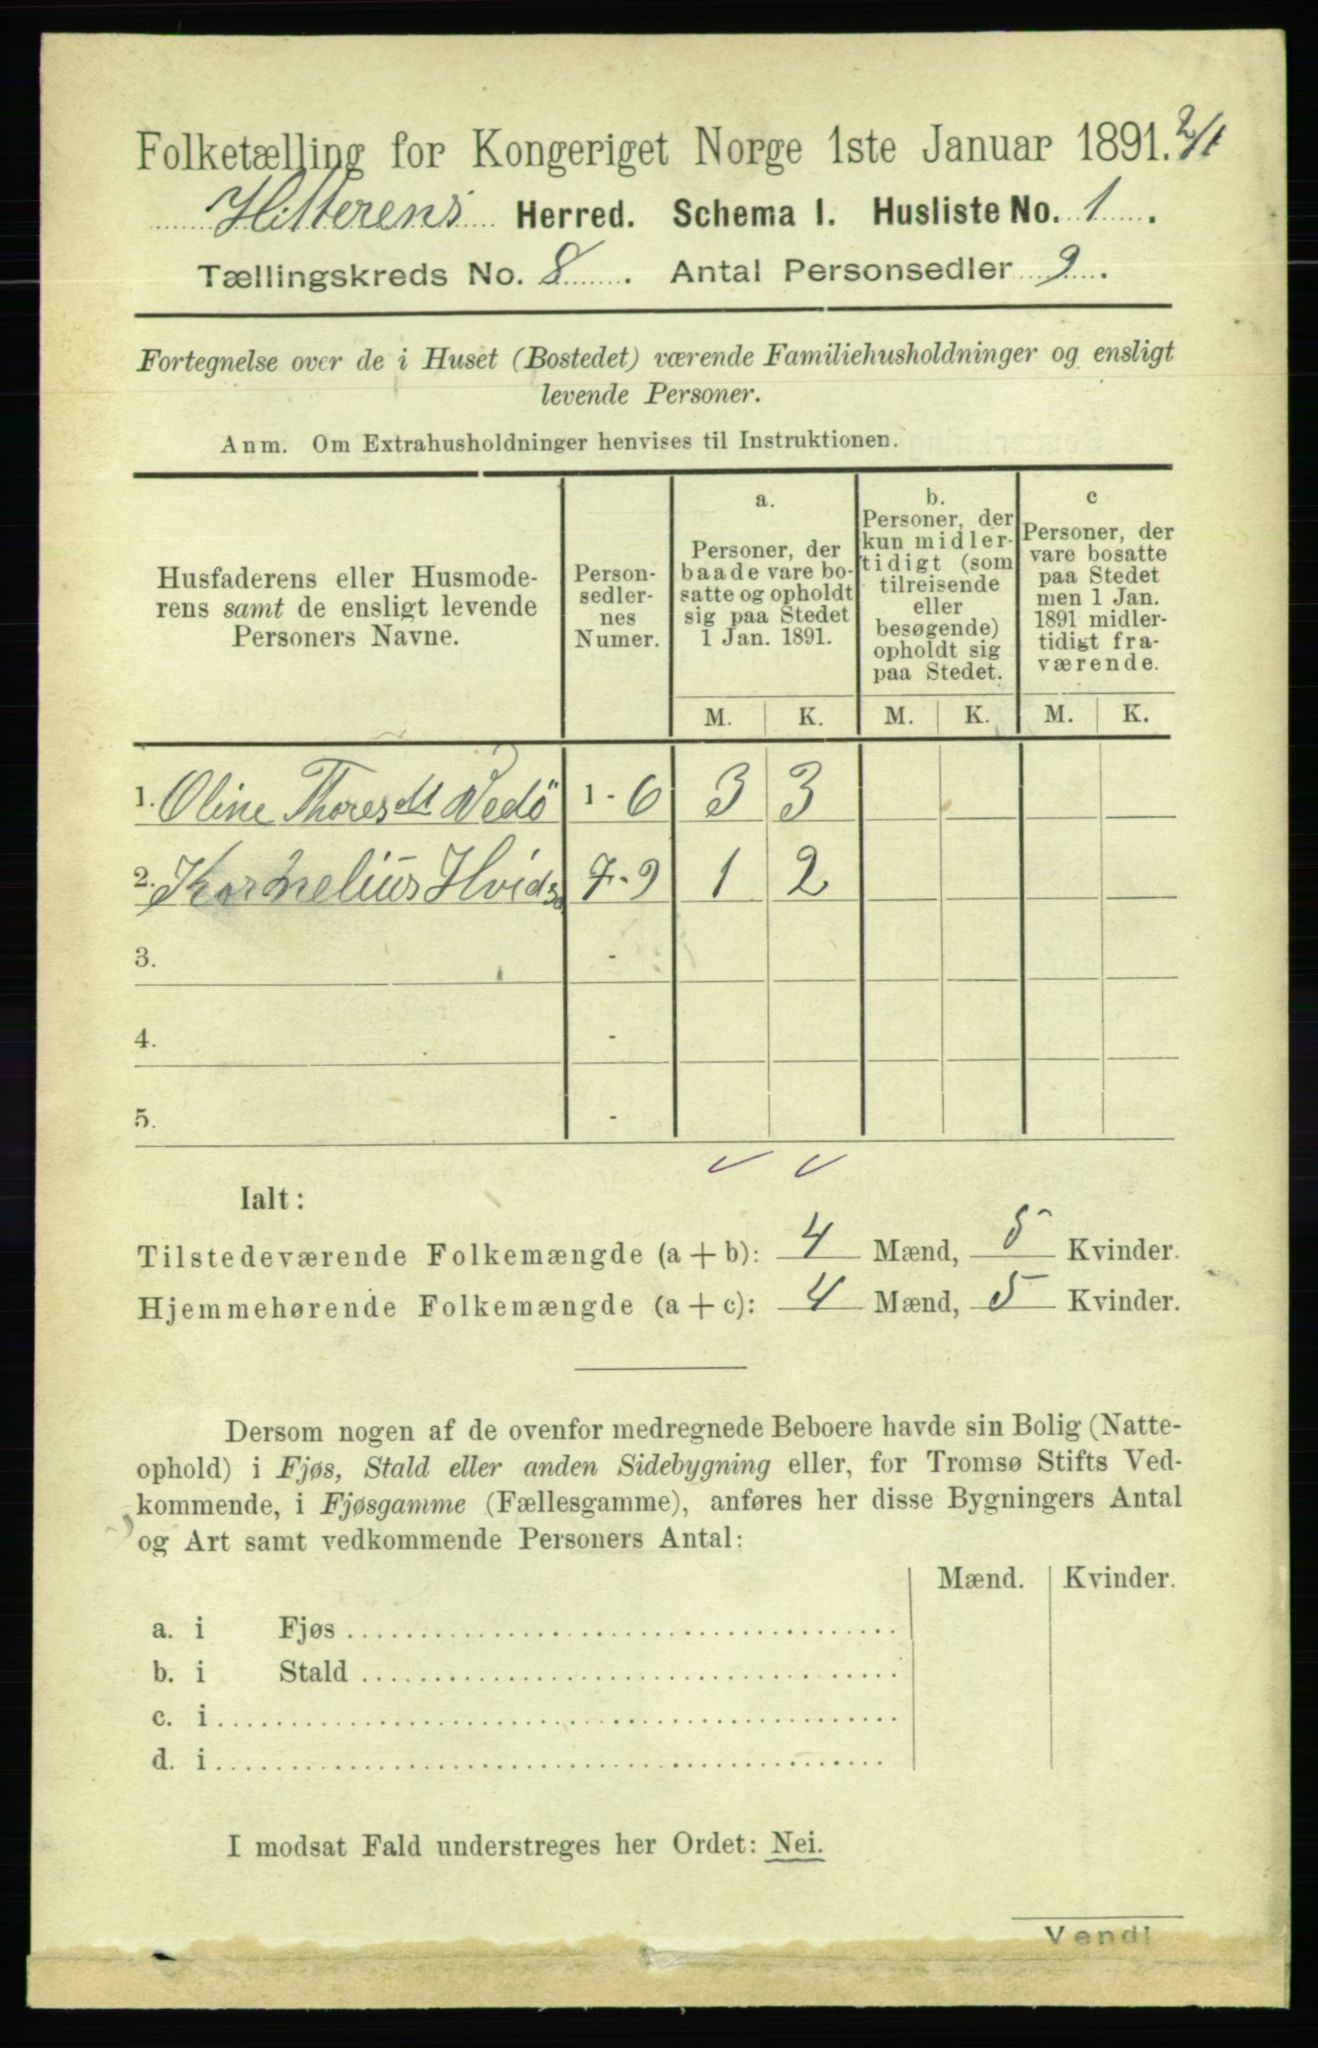 Folketælling for Kongeriget Norge 1ste Januar 1891. 2/1
Hitterens Herred. Schema I. Husliste No. 1.
Tællingskreds No. 8. Antal Personsedler 9.
Fortegnelse over de i Huset (Bostedet) værende Familiehusholdninger og ensligt
levende Personer.
Anm. Om Extrahusholdninger henvises til Instruktionen.
Husfaderens eller Husmode-
rens samt de ensligt levende
Personers Navne.
Person-
sedler-
nes
Numer.
a.
Personer, der
baade vare bo-
satte og opholdt
sig paa Stedet
1 Jan. 1891.
b.
Personer, der
kun midler-
tidigt (som
tilreisende
eller
besøgende)
opholdt sig
paa Stedet.
c
Personer, der
vare bosatte
paa Stedet
men 1 Jan.
1891 midler-
tidigt fra-
værende.
M. K. M. K. M. K.
1. Oline Thoresdt Vedö 1 - 6 3 3
2. Kornelius Hvids. 7 - 9 1 2
3. -
4. -
5. -
Ialt:
Tilstedeværende Folkemængde (a + b): 4 Mænd, 5 Kvinder.
Hjemmehørende Folkemængde (a + c): 4 Mænd, 5 Kvinder.
Dersom nogen af de ovenfor medregnede Beboere havde sin Bolig (Natte-
ophold) i Fjøs, Stald eller anden Sidebygning eller, for Tromsø Stifts Ved-
kommende, i Fjøsgamme (Fællesgamme), anføres her disse Bygningers Antal
og Art samt vedkommende Personers Antal:
Mænd. Kvinder.
a. i Fjøs
b. i Stald
c. i
d. i
I modsat Fald understreges her Ordet: Nei.
Vend!